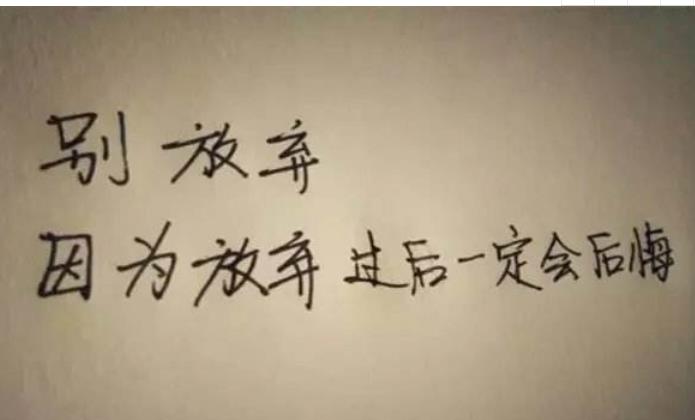 别放弃
因为放弃过后一定会后悔